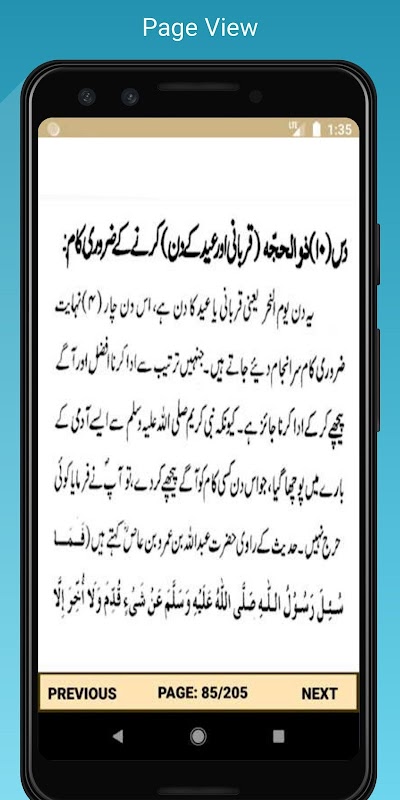 Page View
LTE 1:35
دس (۱۰) ذوالحجّہ (قربانی اور عید کے دن) کرنے کے ضروری کام:
یہ دن یوم النحر یعنی قربانی یا عید کا دن ہے، اس دن چار (۴) نہایت
ضروری کام سر انجام دیئے جاتے ہیں۔ جنہیں ترتیب سے ادا کرنا افضل اور آگے
پیچھے کر کے ادا کرنا جائز ہے۔ کیونکہ نبی کریم صلی اللہ علیہ وسلم سے ایسے آدمی کے
بارے میں پوچھا گیا، جو اس دن کسی کام کو آگے پیچھے کر دے، تو آپؐ نے فرمایا کوئی
حرج نہیں۔ حدیث کے راوی حضرت عبداللہ بن عمرو بن عاصؓ کہتے ہیں (فَمَا
سُئِلَ رَسُوْلُ اللّٰہِ صَلَّی اللّٰہُ عَلَیْہِ وَسَلَّمَ عَنْ شَیْءٍ قُدِّمَ وَلَا اُخِّرَ اِلَّا
PREVIOUS PAGE: 85/205 NEXT